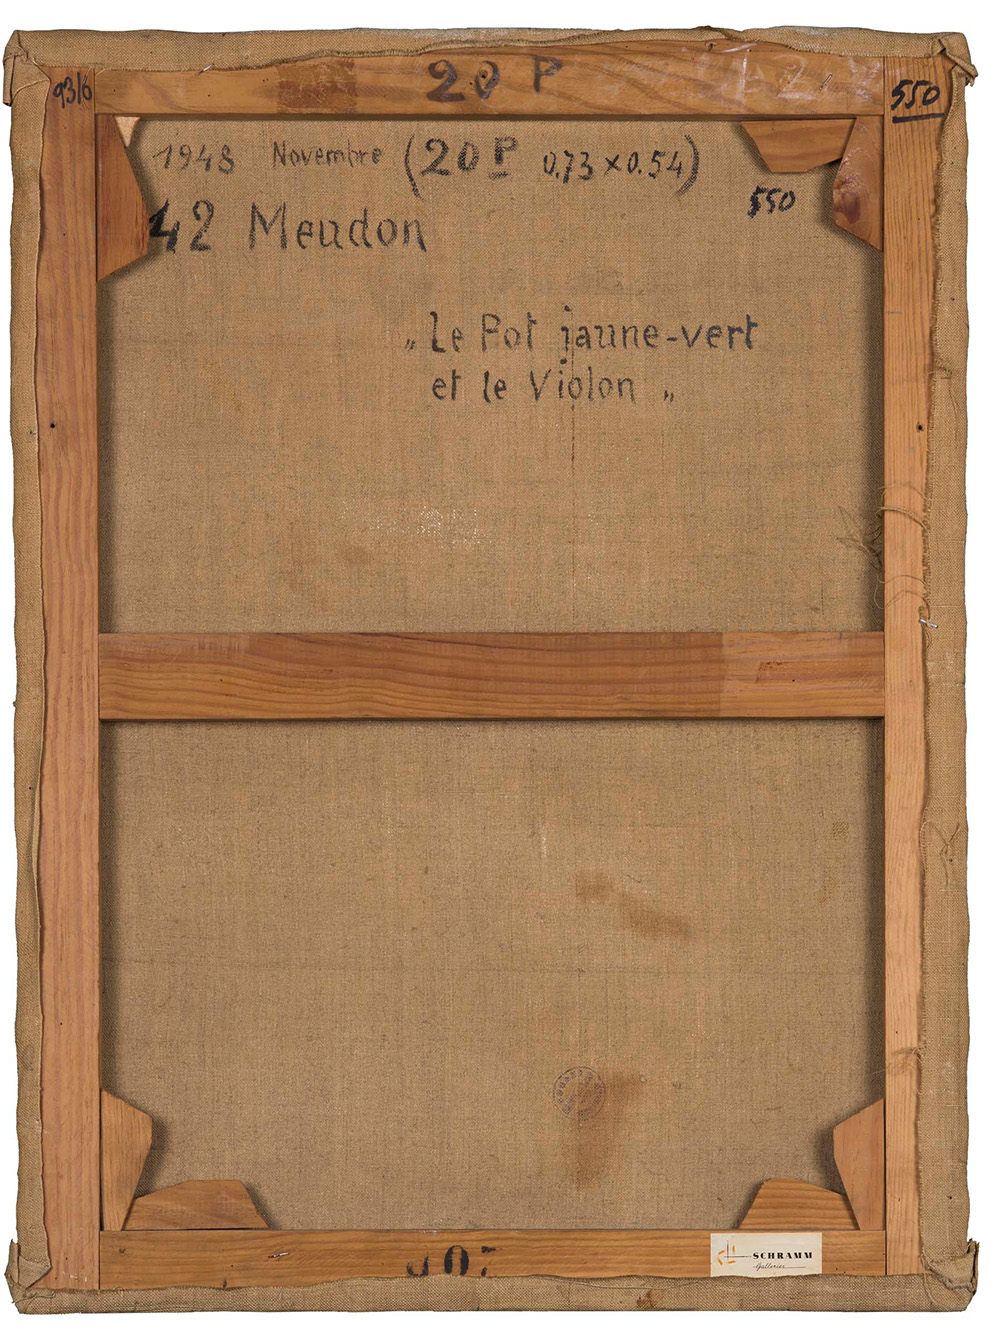 20 P
93/6
550
1948 Novembre (20 P 0.73 x 0.54)
550
42 Meudon
„ Le Pot jaune-vert
et le Violon „
SCHRAMM
Galleries